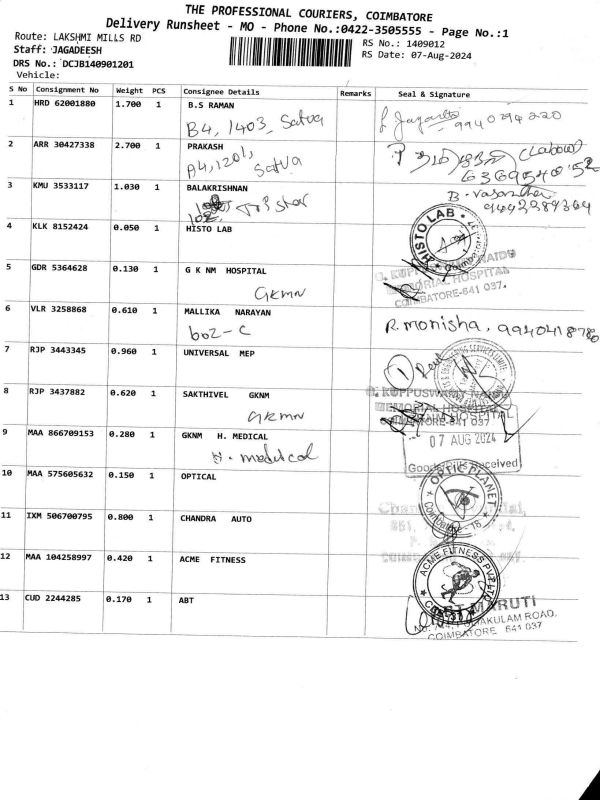 THE PROFESSIONAL COURIERS, COIMBATORE
Delivery Runsheet - MO - Phone No.:0422-3505555 - Page No.:1
Route: LAKSHMI MILLS RD
Staff: JAGADEESH
DRS No.: DCJB140901201
Vehicle:
RS No.: 1409012
RS Date: 07-Aug-2024
S No Consignment No Weight PCS Consignee Details Remarks Seal & Signature
1 HRD 62001880 1.700 1 B.S RAMAN
B4, 1403, Satva
9940294220
2 ARR 30427338 2.700 1 PRAKASH
A4, 1201, Satva
(Labour)
3 KMU 3533117 1.030 1 BALAKRISHNAN
102
4 KLK 8152424 0.050 1 HISTO LAB
HISTO LAB
Coimbatore
5 GDR 5364628 0.130 1 G K NM HOSPITAL
GKMN
G. KUPPUSWAMY NAIDU
MEMORIAL HOSPITAL
COIMBATORE-641 037.
6 VLR 3258868 0.610 1 MALLIKA NARAYAN
602-C
R. Monisha, 9940418780
7 RJP 3443345 0.960 1 UNIVERSAL MEP
8 RJP 3437882 0.620 1 SAKTHIVEL GKNM
GKMN
G. KUPPUSWAMY NAIDU
MEMORIAL HOSPITAL
COIMBATORE-641 037
9 MAA 866709153 0.280 1 GKNM H. MEDICAL
H. medical
07 AUG 2024
Received
10 MAA 575605632 0.150 1 OPTICAL
OPTIC PLANET
Coimbatore
11 IXM 506700795 0.800 1 CHANDRA AUTO
12 MAA 104258997 0.420 1 ACME FITNESS
ACME FITNESS PVT LTD
13 CUD 2244285 0.170 1 ABT
MARUTI
COIMBATORE 641 037